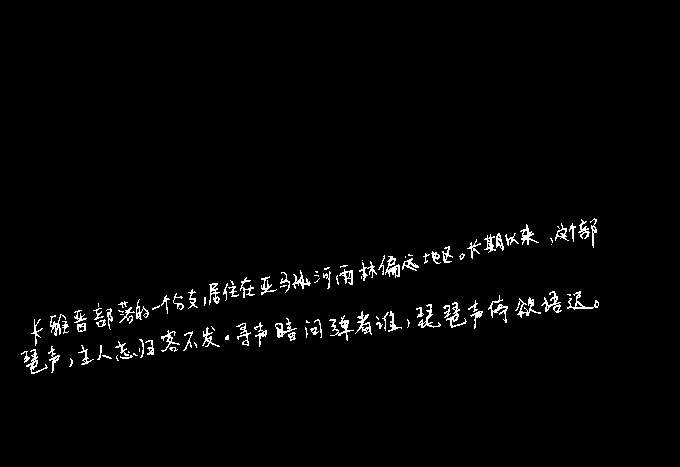 卡雅普部落的一个分支,居住在亚马孙河雨林偏远地区。长期以来,这个部
琶声,主人忘归客不发。寻声暗问弹者谁,琵琶声停欲语迟。